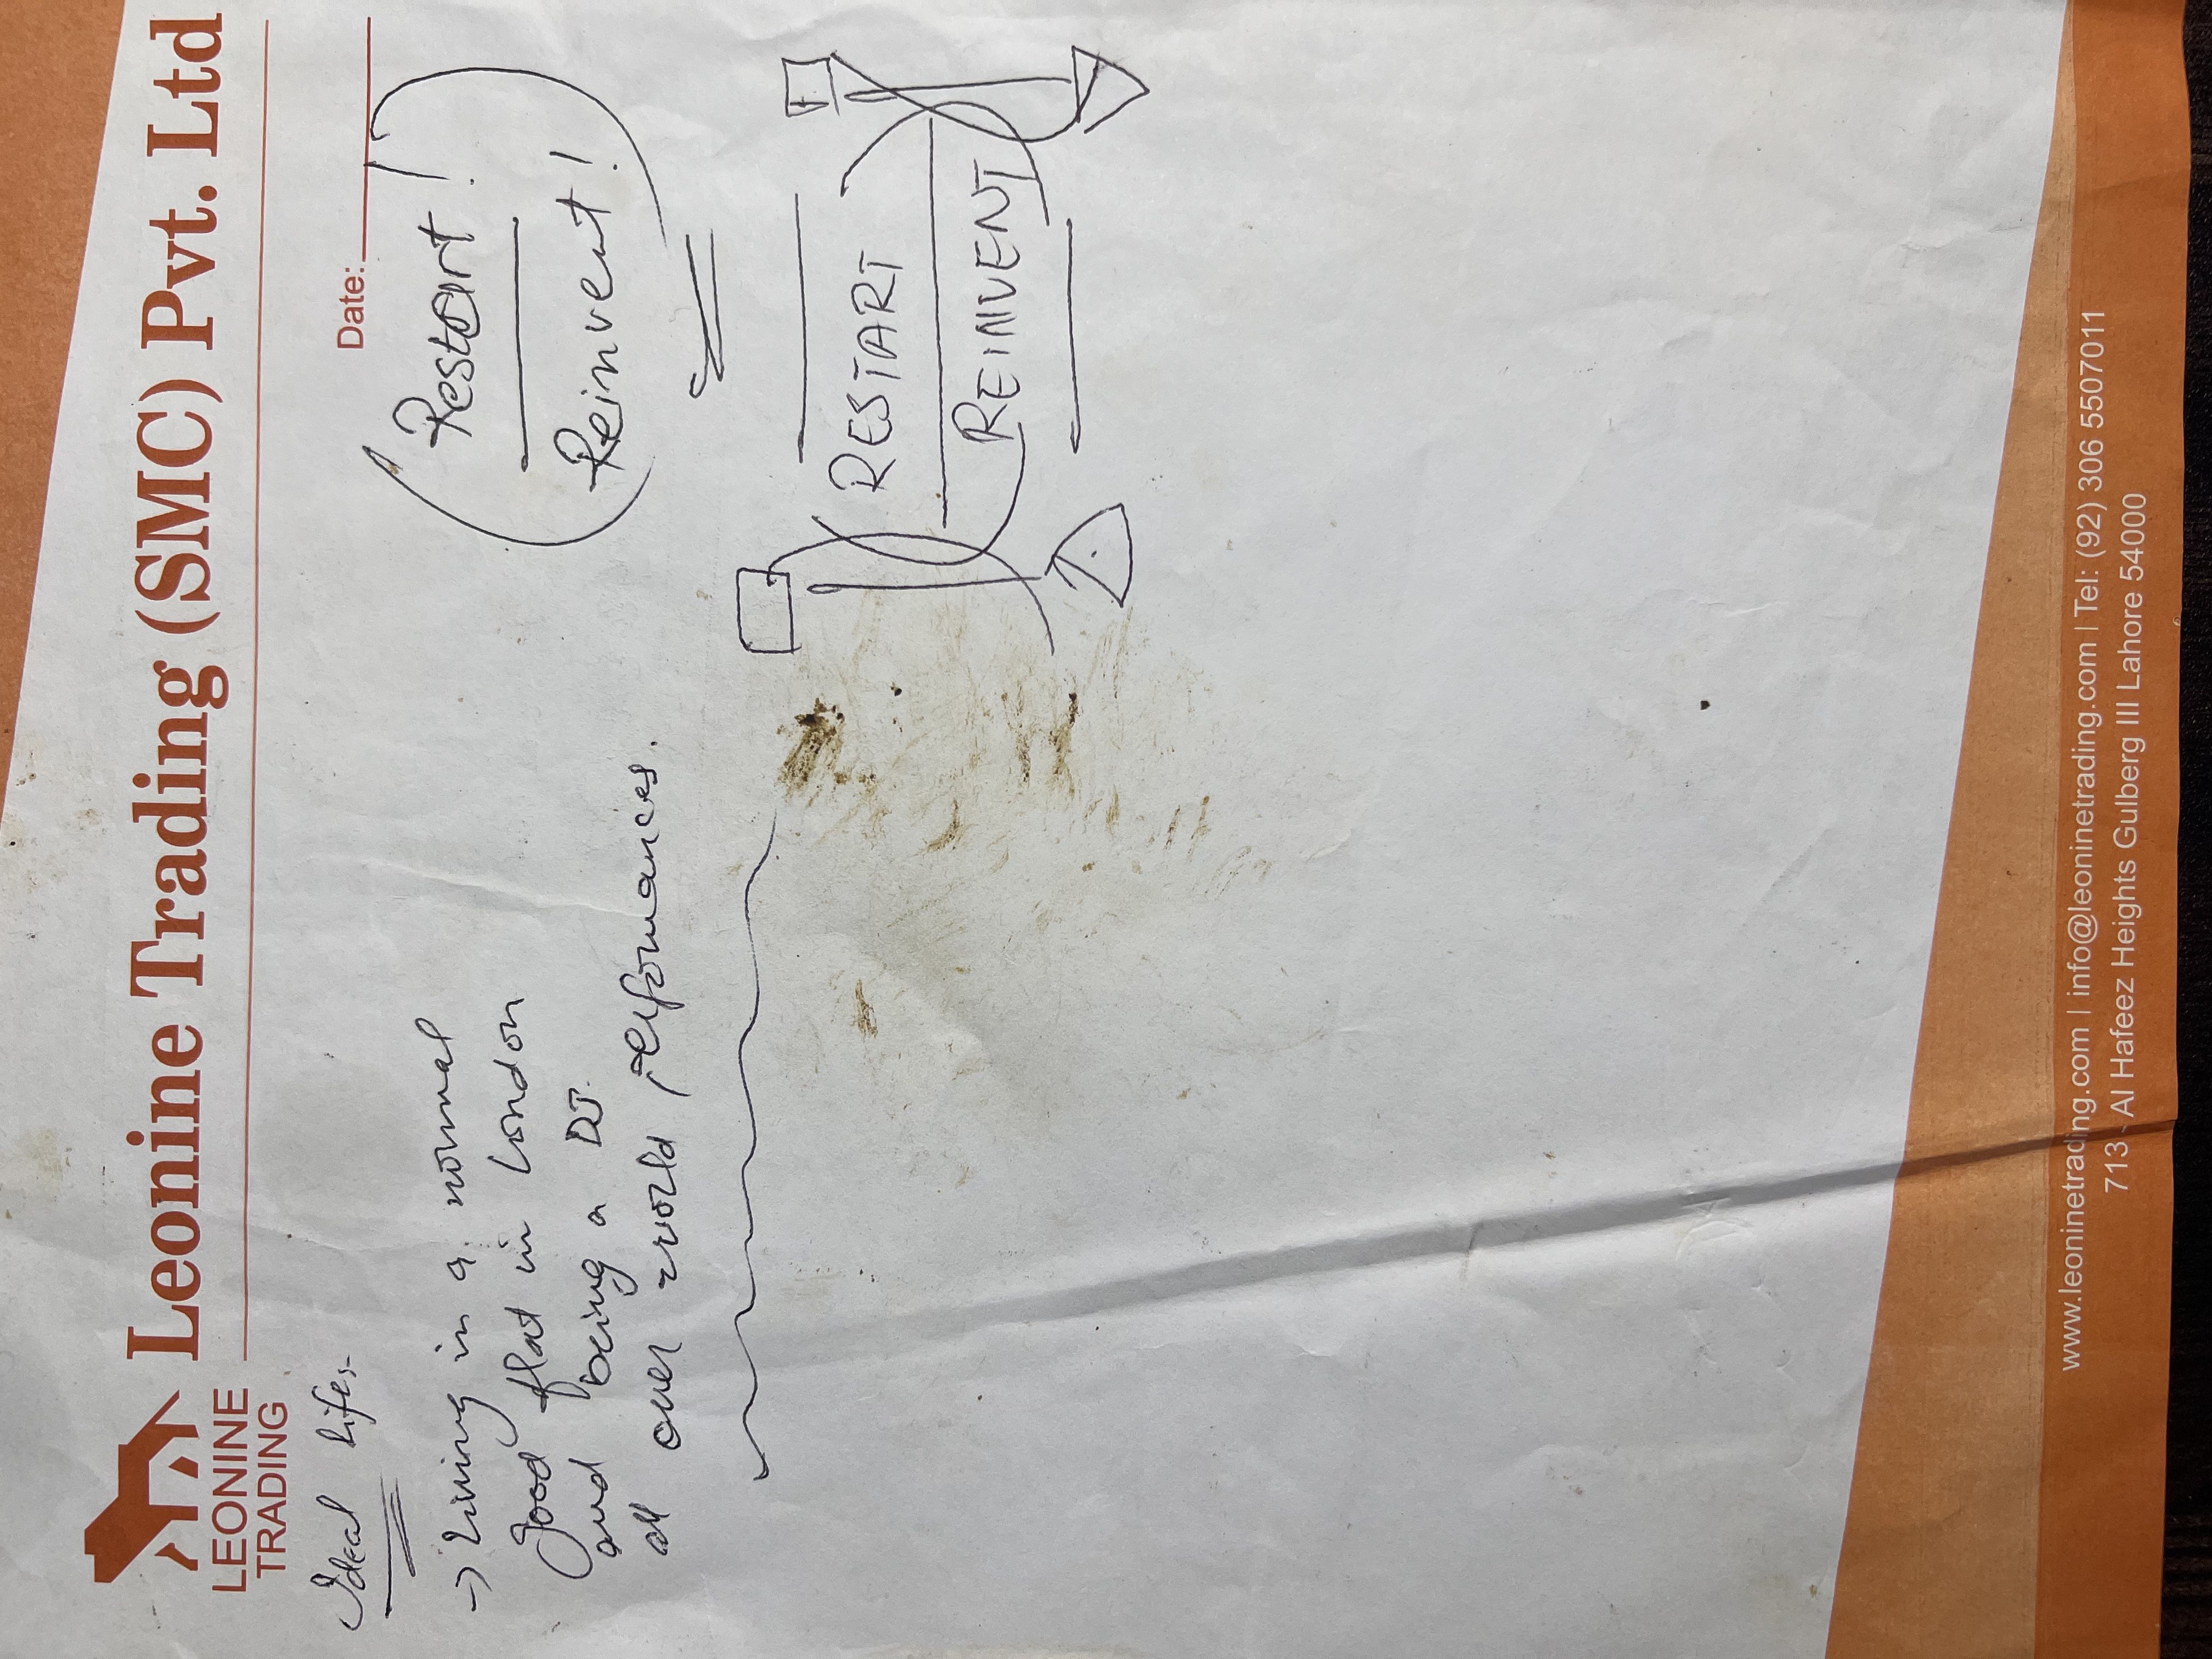 Leonine Trading (SMC) Pvt. Ltd
LEONINE
TRADING
Date:
Ideal life:-
→ Living in a normal
good flat in London
and being a DJ.
all over world performances.
Restart!
Reinvent!
RESTART
REINVENT
www.leoninetrading.com | info@leoninetrading.com | Tel: (92) 306 5507011
713 - Al Hafeez Heights Gulberg III Lahore 54000